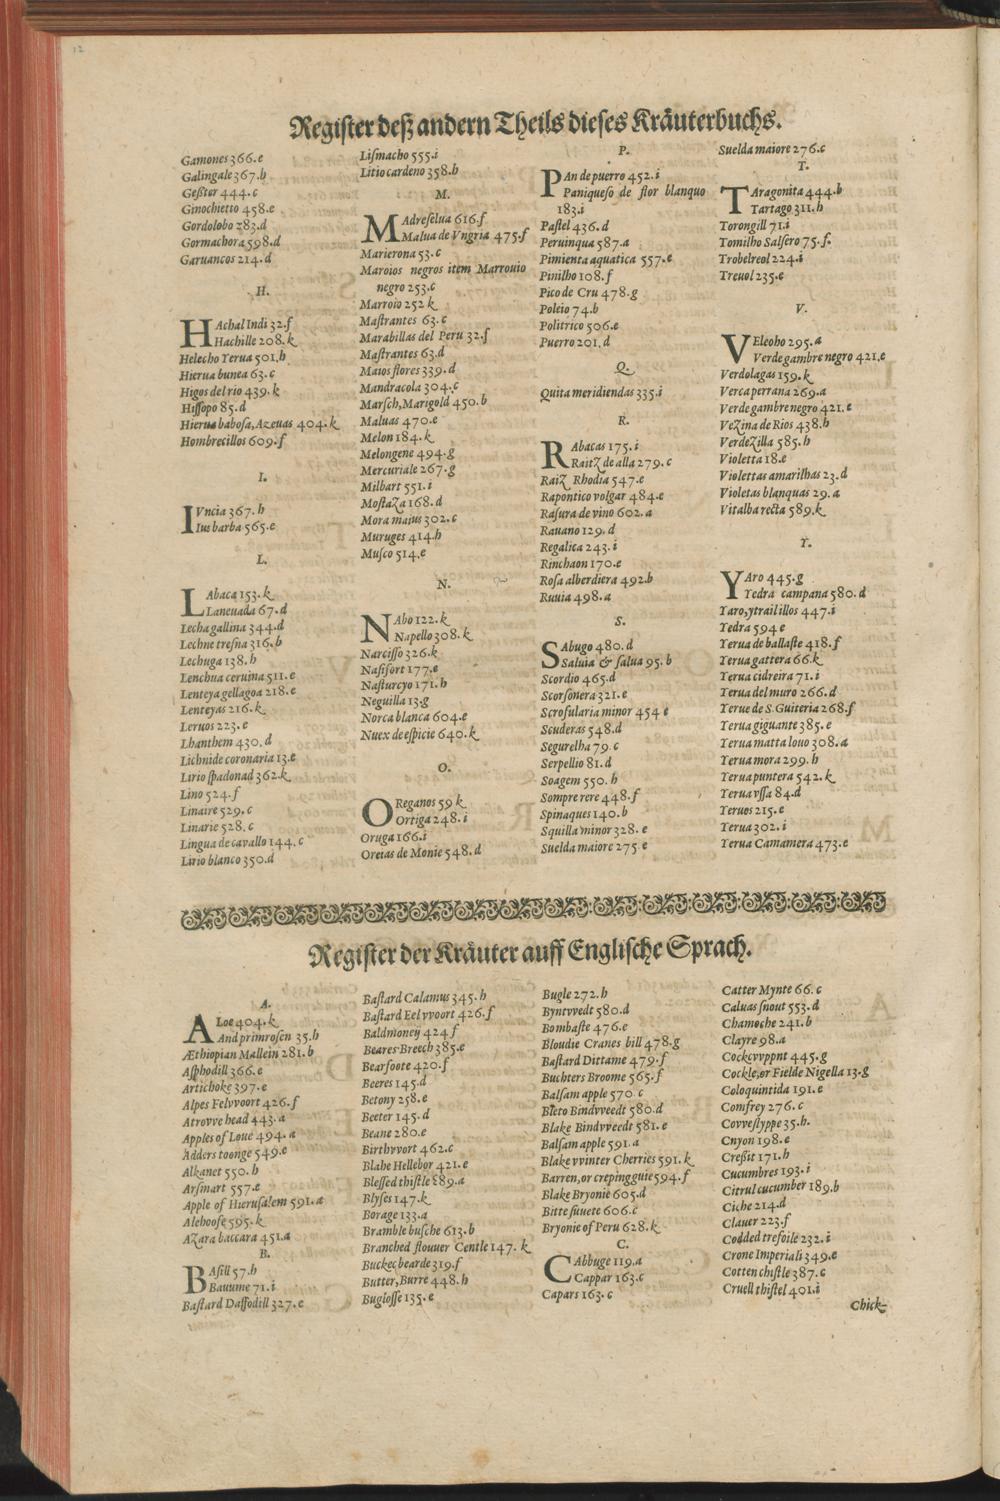 12
Register deß andern Theils dieses Kräuterbuchs.
Gamones 366.e
Galingale 367.h
Geßter 444.c
Ginochietto 458.e
Gordolobo 283.d
Gormachora 598.d
Garuancos 214.d
H.
HAchal Indi 32.f
Hachille 208.k
Helecho Yerua 501.h
Hierua bunea 63.c
Higos del rio 439.k
Hißopo 85.d
Hierua babosa, Azeuas 404.k
Hombrecillos 609.f
I.
IVncia 367.h
Ius barba 565.e
L.
LAbaca 153.k
Laneuada 67.d
Lecha gallina 344.d
Lechne tresna 316.h
Lechuga 138.h
Lenchua ceruina 511.e
Lenteya gellagoa 218.e
Lenteyas 216.k
Leruos 223.e
Lhanthem 430.d
Lichnide coronaria 13.e
Lirio spadonad 362.k
Lino 524.f
Linaire 529.c
Linarie 528.c
Lingua de cavallo 144.c
Lirio blanco 350.d
Lismacho 555.i
Litio cardeno 358.h
M.
MAdreselua 616.f
Malua de Vngria 475.f
Marierona 53.c
Maroios negros item Marrouio
negro 253.c
Marroio 252.k
Mastrantes 63.c
Marabillas del Peru 32.f
Mastrantes 63.d
Maios flores 339.d
Mandracola 304.c
Marsch, Marigold 450.b
Maluas 470.e
Melon 184.k
Melongene 494.g
Mercuriale 267.g
Milbart 551.i
Mostaza 168.d
Mora maius 302.c
Muruges 414.h
Musco 514.e
N.
NAbo 122.k
Napello 308.k
Narcisso 326.k
Nasifort 177.e
Nasturcyo 171.h
Neguilla 13.g
Norca blanca 604.e
Nuex de espicie 640.k
O.
OReganos 59.k
Ortiga 248.i
Oruga 166.i
Oretas de Monie 548.d
P.
PAn de puerro 452.i
Paniqueso de flor blanquo
183.i
Pastel 436.d
Peruinqua 587.a
Pimienta aquatica 557.e
Pinilho 108.f
Pico de Cru 478.g
Poleio 74.b
Politrico 506.e
Puerro 201.d
Q.
Quita meridiendas 335.i
R.
RAbacas 175.i
Raitz de alla 279.c
Raiz Rhodia 547.e
Rapontico volgar 484.e
Rasura de vino 602.a
Rauano 129.d
Regalica 243.i
Rinchaon 170.e
Rosa alberdiera 492.b
Ruuia 498.a
S.
SAbugo 480.d
Saluia & salua 95.b
Scordio 465.d
Scorsonera 321.e
Scrofularia minor 454 e
Scuderas 548.d
Segurelha 79.c
Serpellio 81.d
Soagem 550.h
Sompre rere 448.f
Spinaques 140.b
Squilla minor 328.e
Suelda maiore 275 e
Suelda maiore 276.c
T.
TAragonita 444.b
Tartago 311.h
Torongill 71.i
Tomilho Salsero 75.f.
Trobelreol 224.i
Treuol 235.e
V.
VEleoho 295.a
Verde gambre negro 421.e
Verdolagas 159.k
Verca perrana 269.a
Verde gambre negro 421.e
Vezina de Rios 438.h
Verdezilla 585.h
Violetta 18.e
Violettas amarilhas 23.d
Violetas blanquas 29.a
Vitalba recta 589.k
Y.
YAro 445.g
Yedra campana 580.d
Yaro, ytrailillos 447.i
Yedra 594 e
Yerua de ballaste 418.f
Yerua gattera 66.k
Yerua cidreira 71.i
Yerua del muro 266.d
Yerue de S. Guiteria 268.f
Yerua giguante 385.e
Yerua matta louo 308.a
Yerua mora 299.h
Yerua puntera 542.k
Yerua vssa 84.d
Yeruos 215.e
Yerua 302.i
Yerua Camamera 473.e
Register der Kräuter auff Englische Sprach.
A.
ALoe 404.k
And primrosen 35.h
Æthiopian Mallein 281.b
Asphodill 366.e
Artichoke 397.e
Alpes Felvvoort 426.f
Atrovve head 443.a
Apples of Loue 494.a
Adders toonge 549.e
Alkanet 550.h
Arsmart 557.e
Apple of Hierusalem 591.a
Alehoofe 595.k
Azara baccara 451.a
B.
BAsill 57.h
Bauume 71.i
Bastard Daffodill 327.e
Bastard Calamus 345.h
Bastard Eelvvoort 426.f
Baldmoney 424 f
Beares Breech 385.e
Bearfoote 420.f
Beeres 145.d
Betony 258.e
Beeter 145.d
Beane 280.e
Birthvvort 462.c
Blahe Hellebor 421.e
Blessed thistle 389.a
Blyses 147.k
Borage 133.a
Bramble busche 613.b
Branched flouuer Centle 147.k
Buckes bearde 319.f
Butter, Burre 448.h
Buglosse 135.e
Bugle 272.h
Byntvvedt 580.d
Bombaste 476.e
Bloudie Cranes bill 478.g
Bastard Dittame 479.f
Buchters Broome 565.f
Balsam apple 570.c
Bleto Bindvveedt 580.d
Blake Bindvveedt 581.e
Balsam apple 591.a
Blake vvinter Cherries 591.k
Barren, or creping guie 594.f
Blake Bryonie 605.d
Bitte suuete 606.c
Bryonie of Peru 628.k
C.
CAbbuge 119.a
Cappar 163.c
Capars 163.c
Catter Mynte 66.c
Caluas snout 553.d
Chamoche 241.b
Clayre 98.a
Cockcvvppnt 445.g
Cockle, or Fielde Nigella 13.g
Coloquintida 191.e
Comfrey 276.c
Covveslyppe 35.h.
Cnyon 198.e
Creßit 171.h
Cucumbres 193.i
Citrul cucumber 189.b
Ciche 214.d
Clauer 223.f
Codded trefoile 232.i
Crone Imperiali 349.e
Cotten chistle 387.c
Cruell thistel 401.i
Chick-